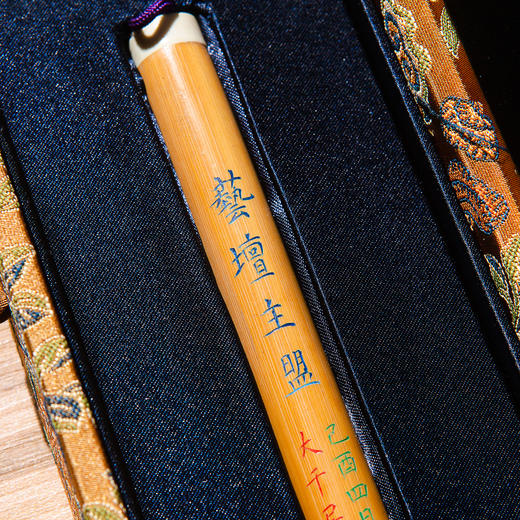 藝壇主盟
己酉四月
大千居